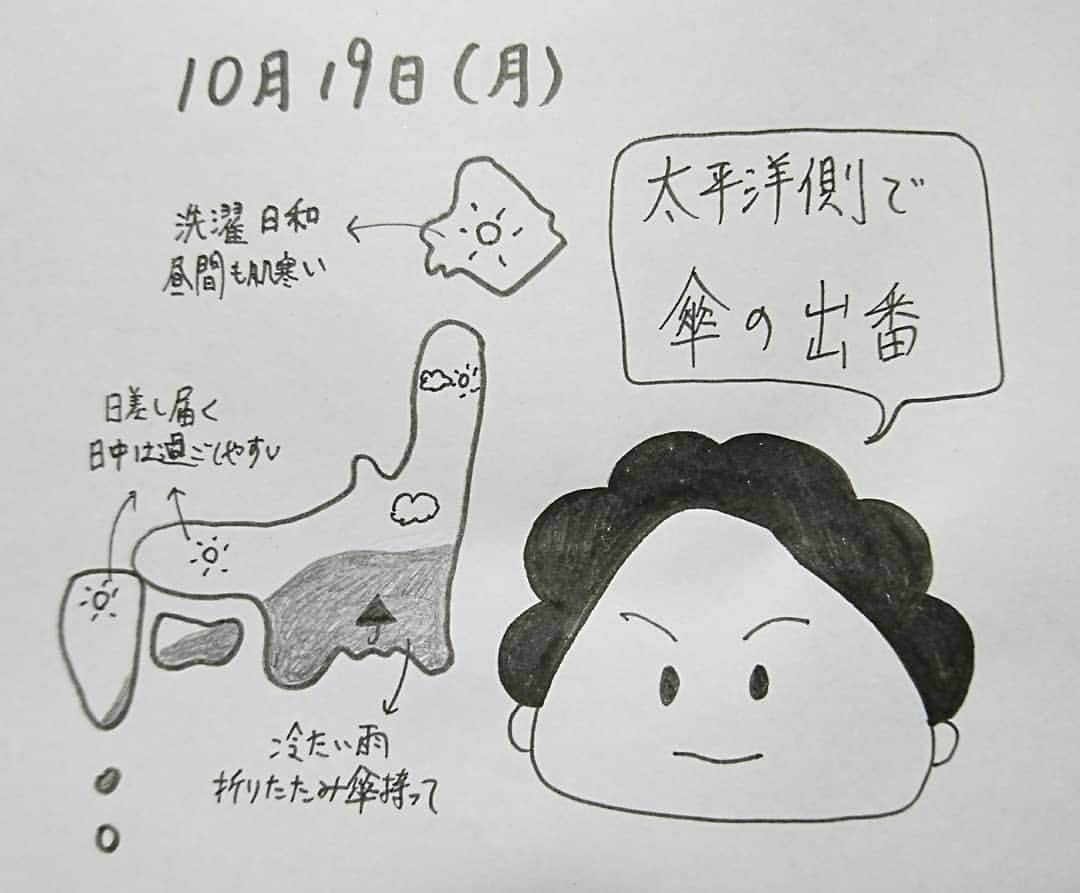 10月19日(月)
太平洋側で
傘の出番
洗濯日和
昼間も肌寒い
日差し届く
日中は過ごしやすい
冷たい雨
折りたたみ傘持って